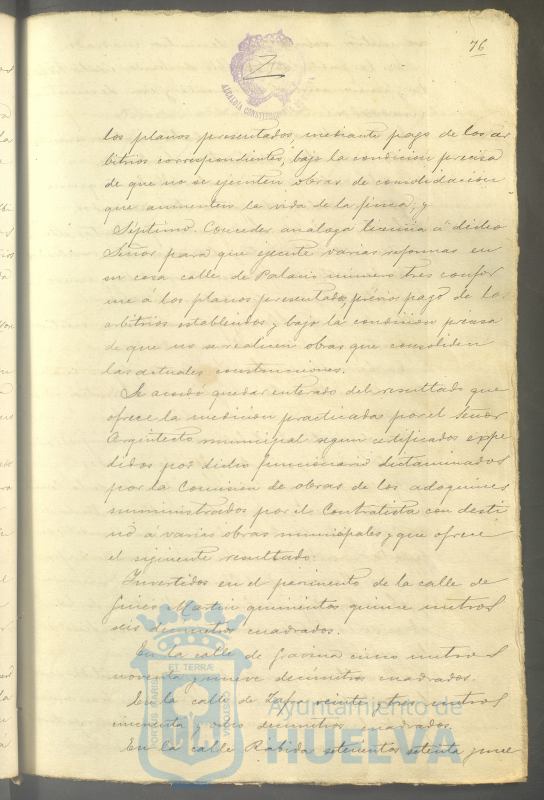 76
ALCALDÍA CONSTITUCIONAL
los planos presentados, mediante pago de los ar
bitrios correspondientes, bajo la condición precisa
de que no se ejecuten obras de consolidación
que aumenten la vida de la finca; y
Séptimo. Conceder análoga licencia á dicho
Señor para que ejecute varias reformas en
su casa calle de Palacio número tres confor
me á los planos presentados, previo pago de los
arbitrios establecidos y bajo la condición precisa
de que no se realicen obras que consoliden
las actuales construcciones.
Se acordó quedar enterado del resultado que
ofrece la medición practicada por el Señor
Arquitecto municipal según certificados expe
didos por dicho funcionario dictaminados
por la Comisión de obras de los adoquines
suministrados por el Contratista con desti
no á varias obras municipales y que ofrece
el siguiente resultado:
Invertidos en el pavimento de la calle de
Ginés Martín quinientos quince metros
seis decímetros cuadrados.
En la calle de Gravina cinco metros
noventa y nueve decímetros cuadrados.
En la calle de veinte y tres metros
cincuenta y ocho decímetros cuadrados.
En la calle Rábida setecientos setenta
PORTUS MARIS
ET TERRÆ
CUSTODIA
Ayuntamiento de
HUELVA